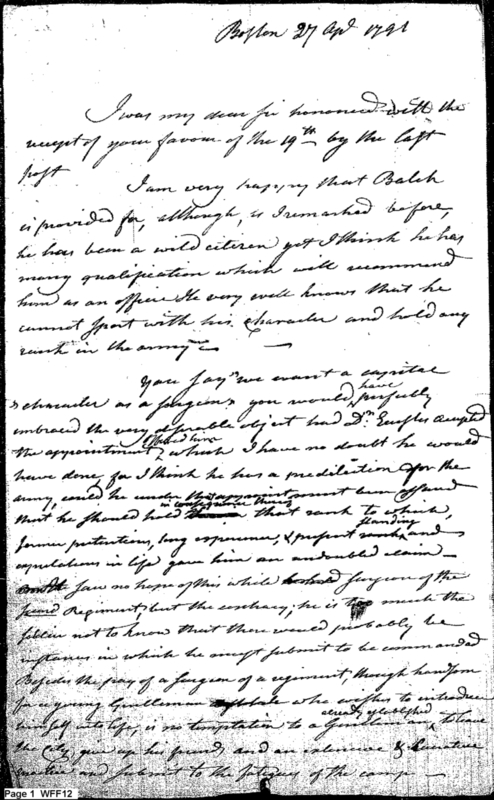 Boston 27 Apl 1791
I was my dear sir honoured with the
receipt of your favour of the 19th by the last
post
I am very happy that Balch
is provided for, although, as I remarked before,
he has been a wild citizen yet I think he has
many qualification which will recommend
him as an officer He very well knows that he
cannot sport with his character and hold any
rank in the army —
You say "we want a capital
character as a surgeon" you would have perfectly
embraced the very desirable object had Dr. Eustis accepted
the appointment offered him which I have no doubt he would
have done, for I think he has a predilection for the
army, could he
that he should hold that rank to which,
former pretentions, long experience, & present standing and
expectations in life gave him an undoubted claim —
saw no hope of this while surgeon of the
Regiment; but the contrary; he is too much the
soldier not to know that there would probably be
instances in which he must submit to be commanded
Besides the pay of a surgeon of a regiment, though handsome
for a young Gentleman who wishes to introduce
himself into life, is no temptation to a Gentleman already established to leave
the City, give up his friends, and an extensive & lucrative
practice and submit to the fatigues of the camp —
Page 1 WFF12